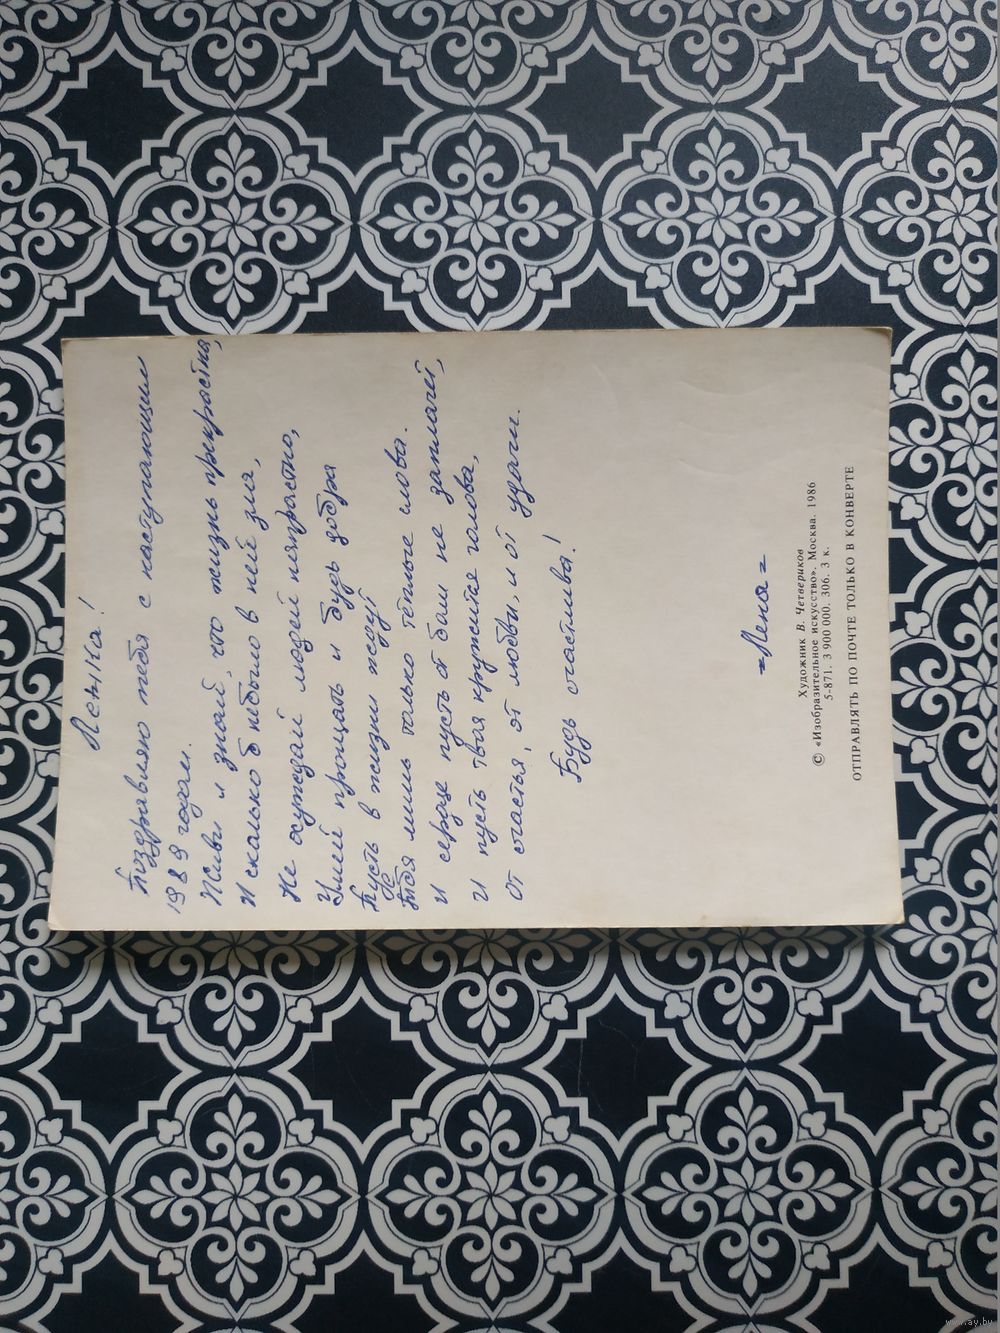 Ленка!
Поздравляю тебя с наступающим
1989 годом.
Живи и знай, что жизнь прекрасна,
И сколько б небыло в ней зла,
Не осуждай людей напрастно,
Умей прощать и будь добра
Пусть в жизни ждут
тебя лишь только тёплые слова.
И серце пусть от боли не заплачет,
И пусть твоя кружится голова,
От счастья, от любви, и от удачи.
Будь счастлива!
=Лена=
Художник В. Четвериков
© «Изобразительное искусство», Москва. 1986
5-871. 3 900 000. 306. 3 к.
ОТПРАВЛЯТЬ ПО ПОЧТЕ ТОЛЬКО В КОНВЕРТЕ
www.ay.by